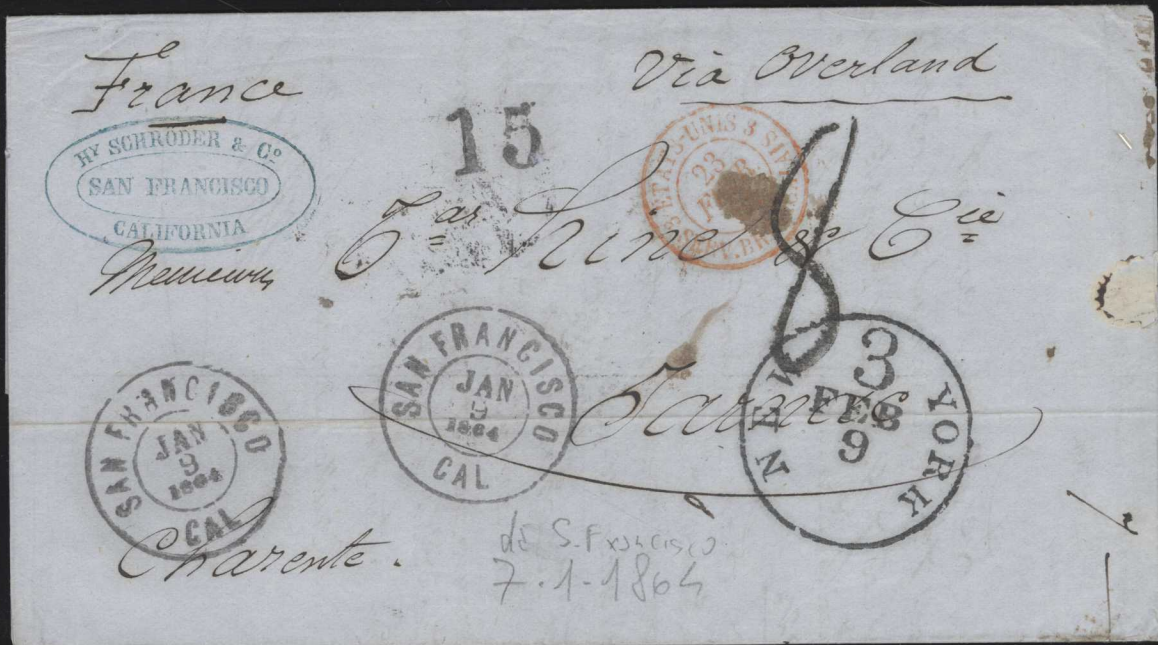 France
Via Overland
15
HY SCHRODER & Co.
SAN FRANCISCO
CALIFORNIA
ETATS-UNIS 3 SERV. BR.
23
FEVR.
8
Messieurs
& Cie
SAN FRANCISCO
JAN
9
1864
CAL
SAN FRANCISCO
JAN
9
1864
CAL
NEW YORK
3
FEB
9
Jarnac
Charente.
de S. Francisco
7.1-1864